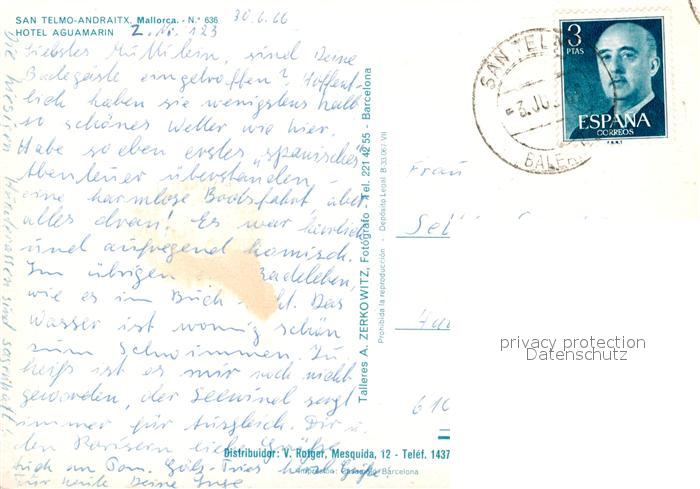 SAN TELMO-ANDRAITX, Mallorca. - N.° 636
HOTEL AGUAMARIN
30.6.66
Z. Ni. 123
Liebstes Muttilein, sind Deine
Badegäste eingetroffen? Hoffent-
lich haben sie wenigstens halb
so schönes Wetter wie hier.
Habe soeben erstes „spanisches"
Abenteuer überstanden -
eine harmlose Bootsfahrt aber
alles dran! Es war herrlich
und aufregend komisch.
Im übrigen Badeleben,
wie es im Buch Das
Wasser ist wonnig schön
zum Schwimmen. Zu
heiß ist es mir noch nicht
geworden, der Seewind sorgt
immer für Ausgleich. Dir u.
den Parisern liebe Grüße
auch an Fam.
Für heute Deine Inge.
Die
sind sagenhaft!
Talleres A. ZERKOWITZ, Fotógrafo - Tel. 221 42 55 - Barcelona
Prohibida la reproducción - Depósito Legal B. 33.067 VII
Distribuidor: V. Rotger, Mesquida, 12 - Teléf. 1437
Barcelona
Frau
61
SAN TEL
3. JU
BALE
3
PTAS
ESPAÑA
CORREOS
privacy protection
Datenschutz